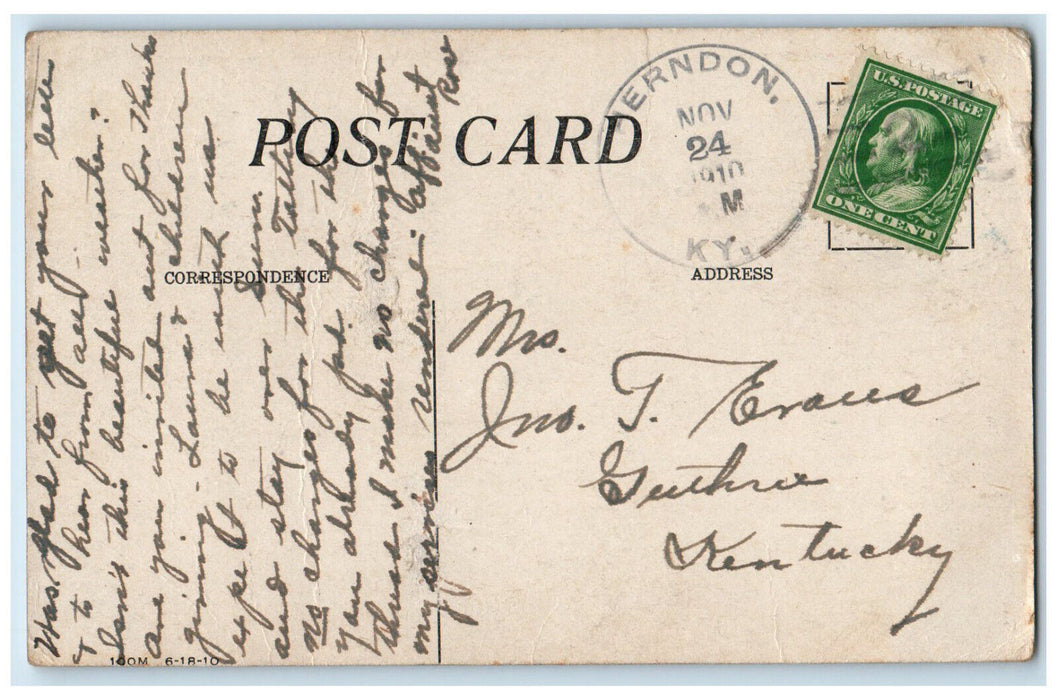 POST CARD
CORRESPONDENCE
ADDRESS
HERNDON,
NOV
24
1910
M
KY.
U.S. POSTAGE
ONE CENT
Mrs.
Jno. T. Evans
Guthrie
Kentucky
Was glad to get your letter
& to hear from all.
Isn't this beautiful weather?
Are you invited out for Thanks
giving - Laura & children
expect to be with us
and stay over Sun.
No changes for the tatting
you already pd. for the
thread I make no changes for
my services rendered. Aff. Aunt
100M 6-18-10